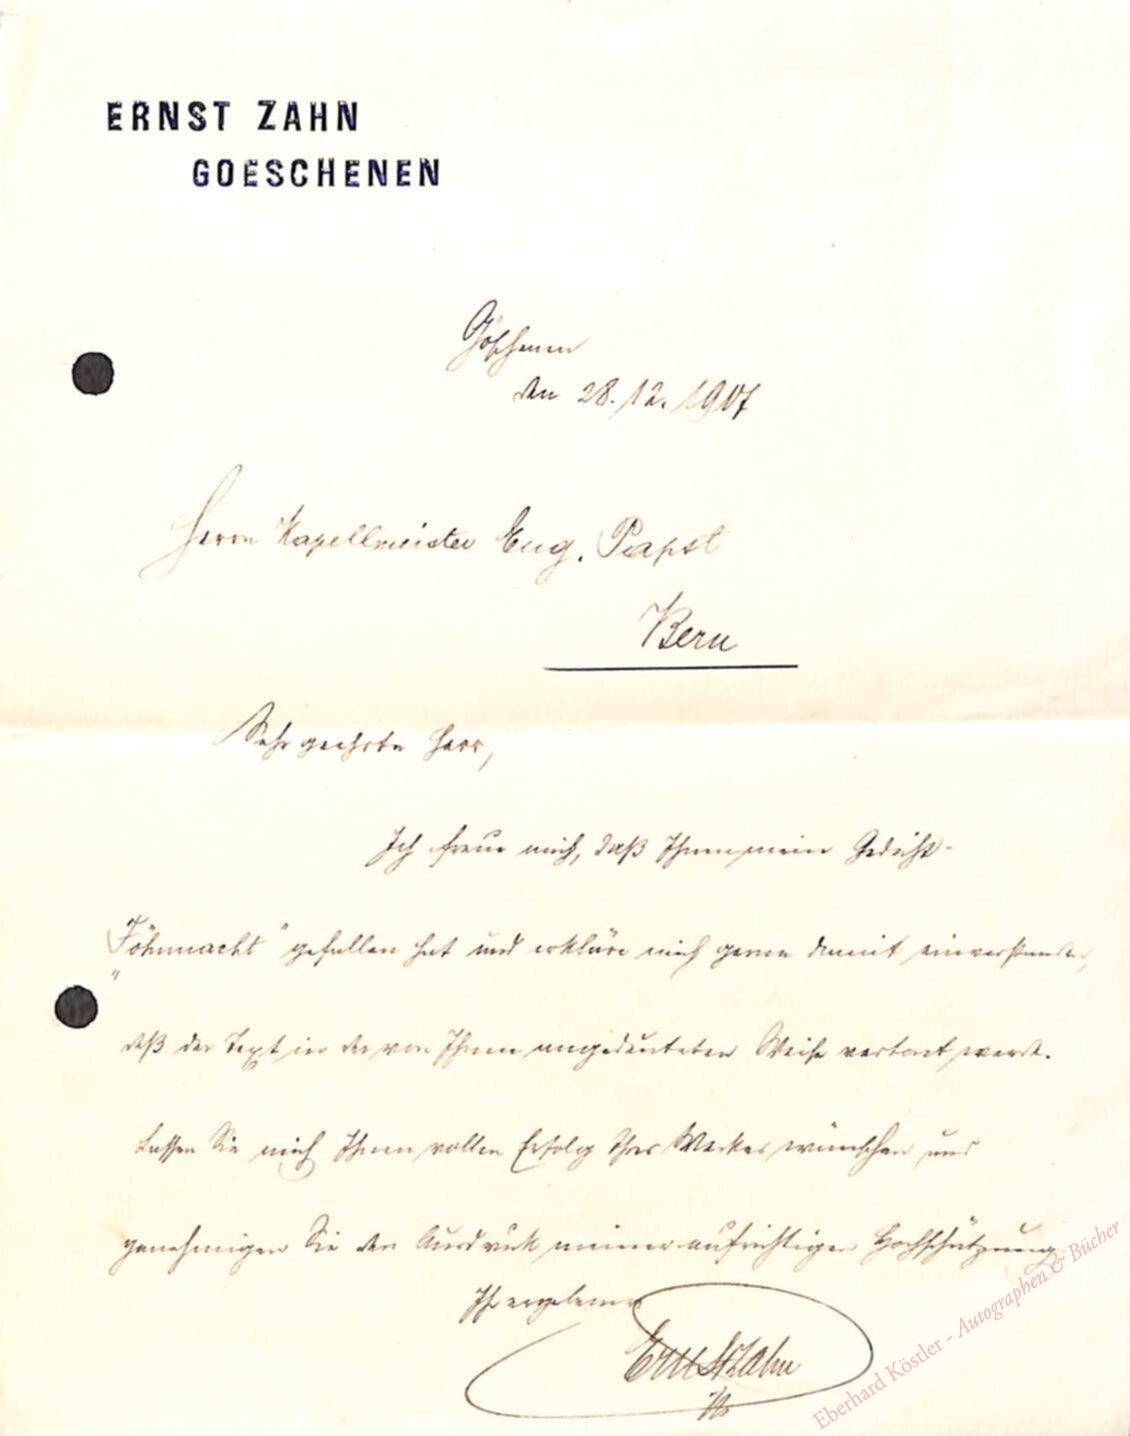 ERNST ZAHN
GOESCHENEN
Göschenen
den 28.12.1907
Herrn Kapellmeister Eug. Papst
Bern
Sehr geehrter Herr,
Ich freue mich, daß Ihnen mein Gedicht
„Föhnnacht" gefallen hat und erkläre mich gerne damit einverstanden,
daß der Text in der von Ihnen angedeuteten Weise vertont werde.
Lassen Sie mich Ihnen vollen Erfolg Ihres Werkes wünschen und
genehmigen Sie den Ausdruck meiner aufrichtigen Hochschätzung
Ihr ergebener
Ernst Zahn
Eberhard Köstler - Autographen & Bücher